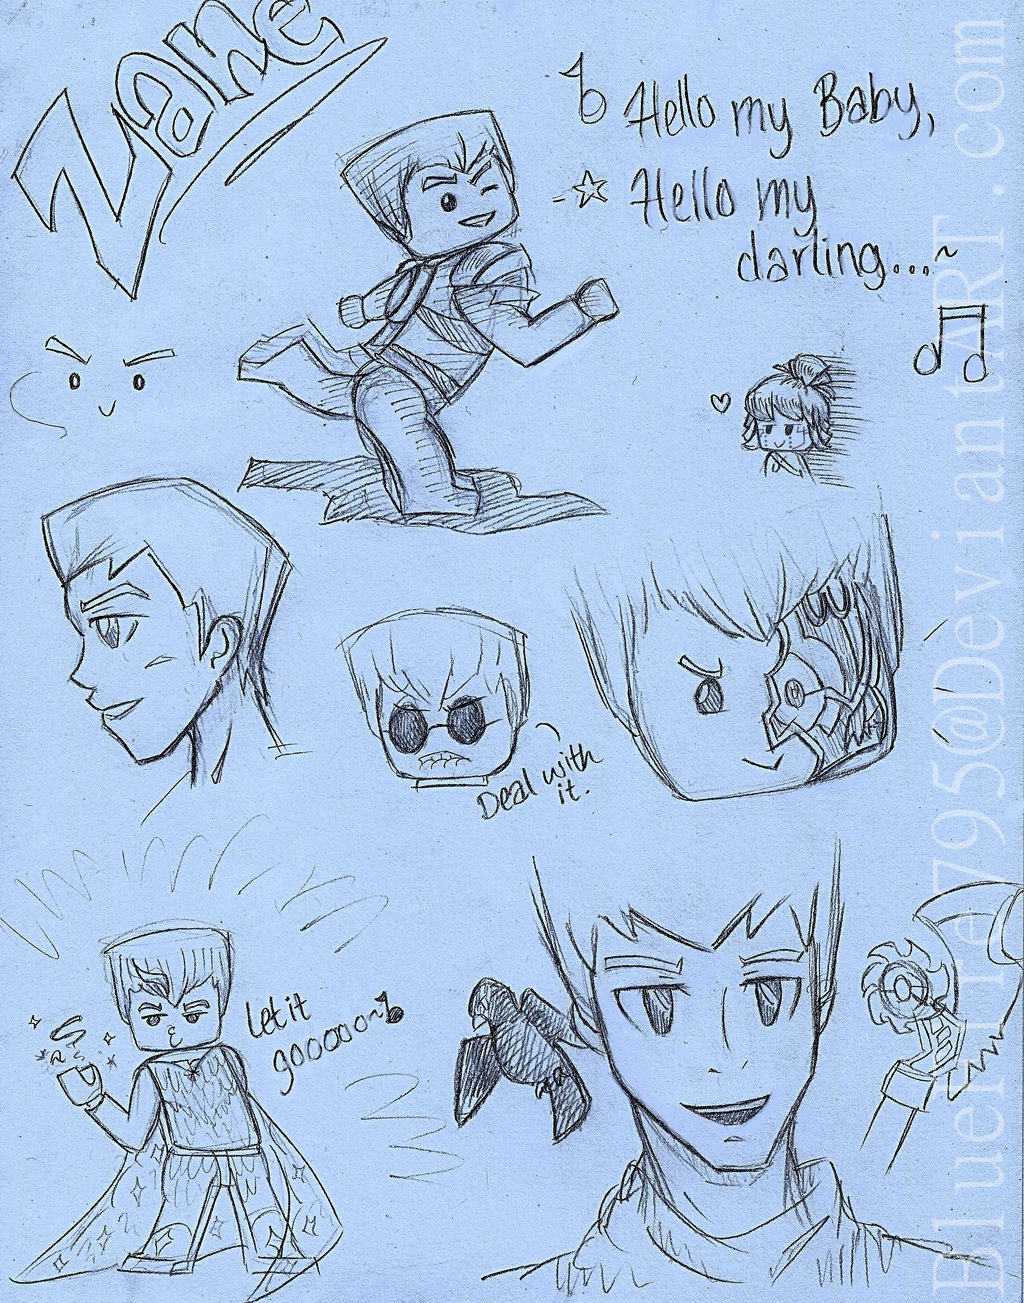 Zane
Hello my Baby,
Hello my
darling...~
Deal with
it.
Let it
gooooo~
BlueFire7795@DeviantART.com